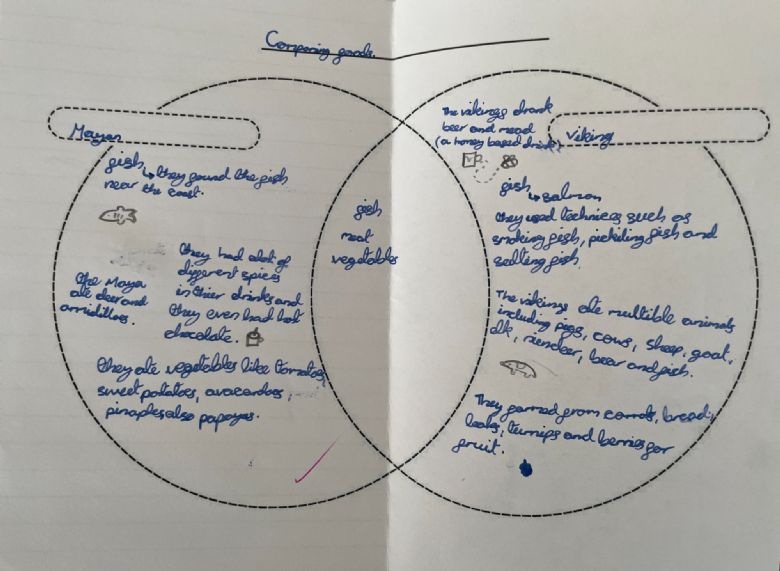 Comparing foods.
Mayan
fish ↳ they found the fish
near the coast.
the Maya
ate deer and
armidillos.
they had alot of
different spices
in thier drinks and
they even had hot
chocolate.
they ate vegetables like tomatos,
sweet potatoes, avacardoes,
pinaples also papayas.
fish
meat
vegetables
The vikings drank
beer and mead
(a honey based drink)
viking
fish ↳ salmon
they used technices such as
smoking fish, pickiling fish and
salting fish.
The vikings ate multible animals
including pigs, cows, sheep, goat,
elk, riendeer, bear and fish.
They farmed from carrots, bread,
leaks, turnips and berries for
fruit.